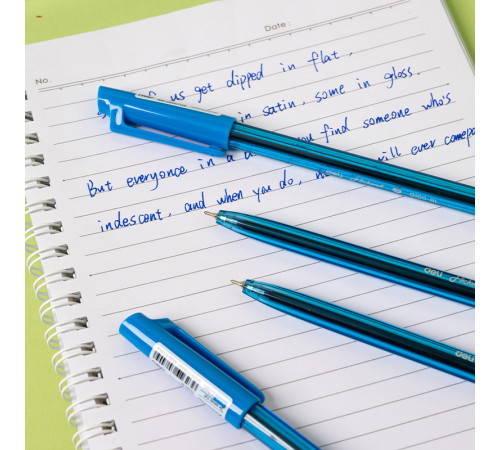 Date:
No.
us get dipped in flat,
in satin, some in gloss.
But everyonce in a find someone who's
indescent, and when you do, will ever compa
deli
deli